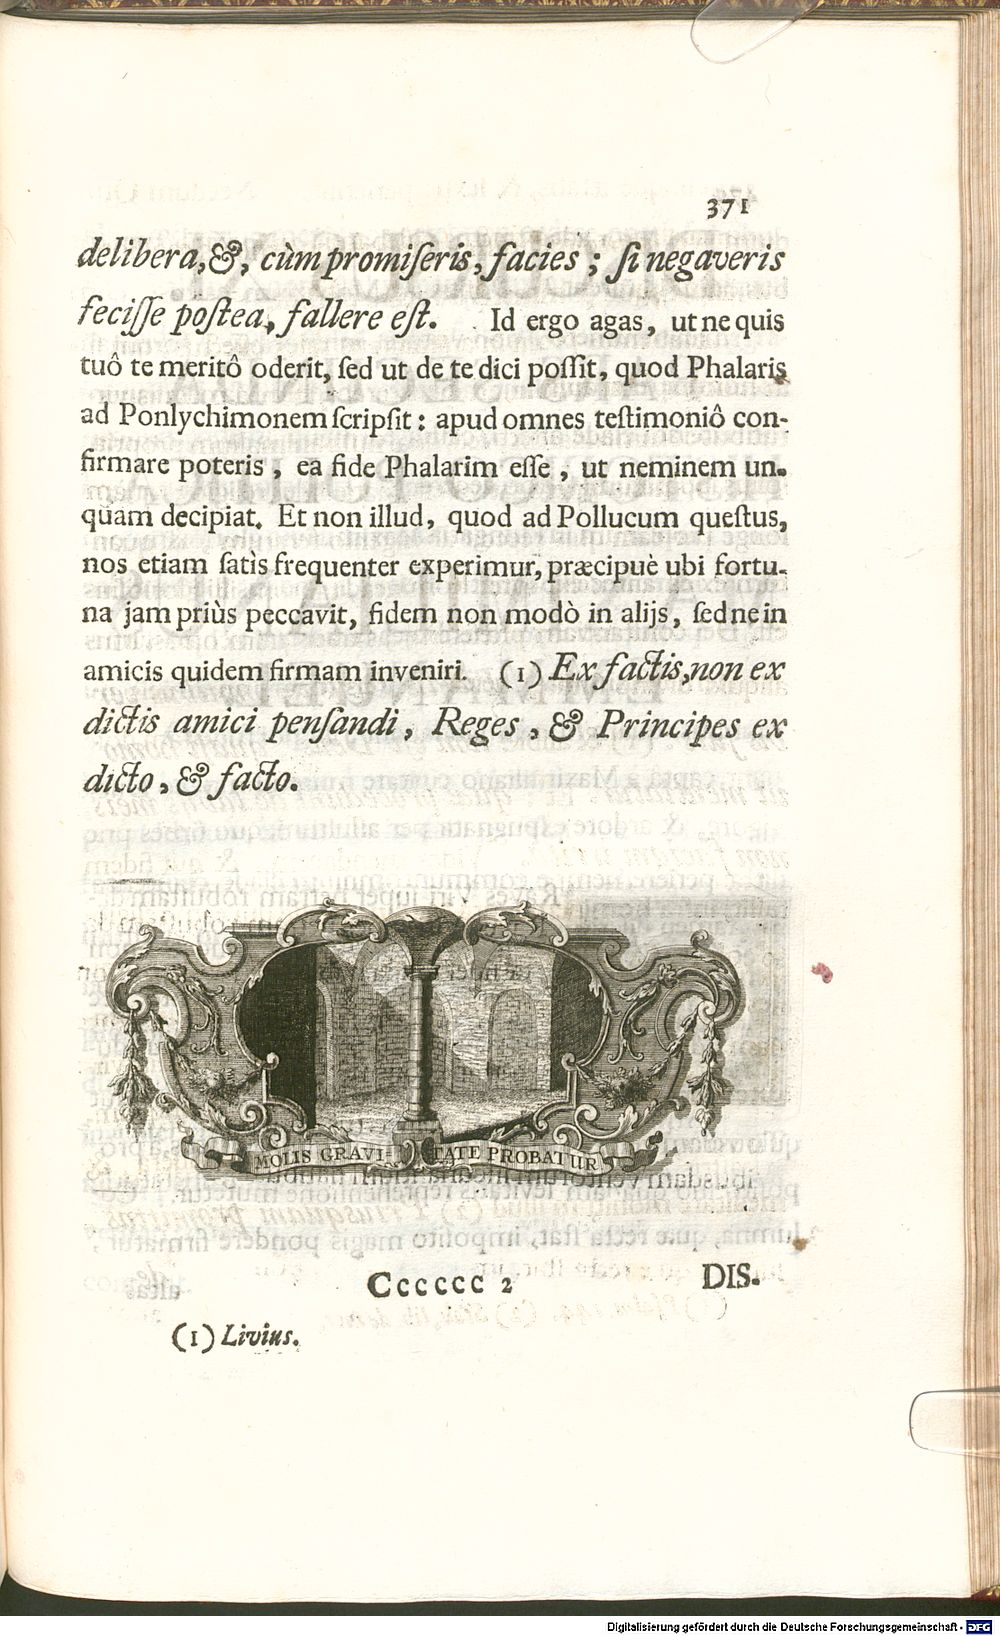 371
delibera, &, cùm promiſeris, facies; ſi negaveris
feciſſe poſtea, fallere eſt. Id ergo agas, ut ne quis
tuô te meritô oderit, ſed ut de te dici poſſit, quod Phalaris
ad Ponlychimonem ſcripſit: apud omnes teſtimoniô con-
firmare poteris, ea fide Phalarim eſſe, ut neminem un-
quam decipiat. Et non illud, quod ad Pollucum queſtus,
nos etiam ſatìs frequenter experimur, præcipuè ubi fortu-
na jam priùs peccavit, fidem non modò in alijs, ſed ne in
amicis quidem firmam inveniri. (1) Ex factis, non ex
dictis amici penſandi, Reges, & Principes ex
dicto, & facto.
MOLIS GRAVI- TATE PROBATUR
Cccccc 2 DIS-
(1) Livius.
Digitalisierung gefördert durch die Deutsche Forschungsgemeinschaft - DFG